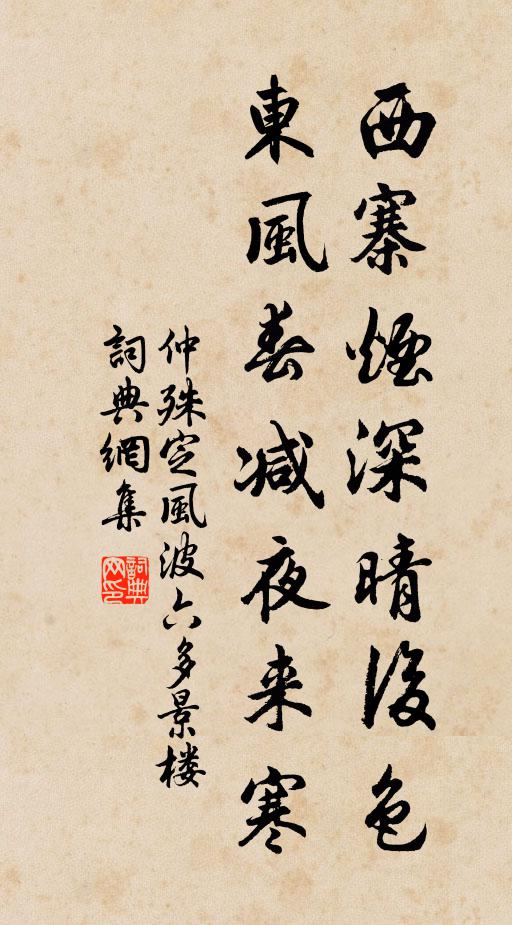 西寨煙深晴後色
東風春减夜来寒
仲殊定風波六多景楼
詞典網集
詞典网印